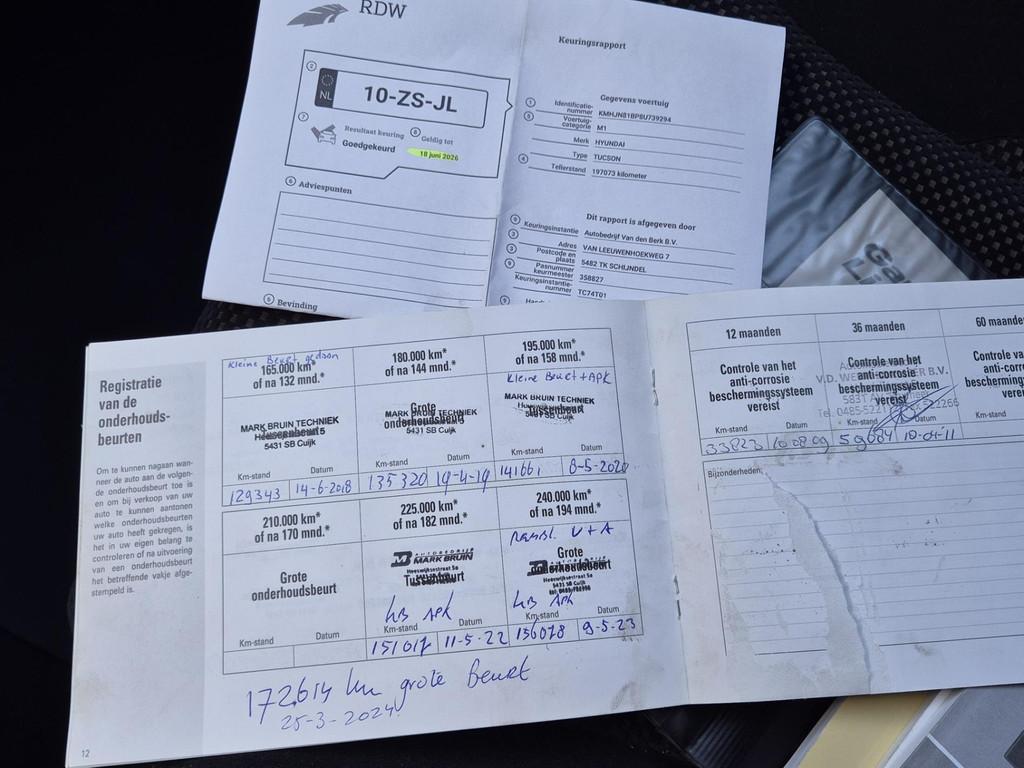 RDW
Keuringsrapport
2
NL
10-ZS-JL
7
Resultaat keuring
Goedgekeurd
8
Geldig tot
18 juni 2026
6 Adviespunten
5 Bevinding
Gegevens voertuig
1 Identificatie-
nummer KMHJN81BP8U739294
5 Voertuig-
categorie M1
Merk HYUNDAI
Type TUCSON
4 Tellerstand 197073 kilometer
Dit rapport is afgegeven door
Keuringsinstantie Autobedrijf Van den Berk B.V.
3 Adres VAN LEEUWENHOEKWEG 7
3 Postcode en
plaats 5482 TK SCHIJNDEL
9 Pasnummer
keurmeester 358827
Keuringsinstantie-
nummer TC74T01
Registratie
van de
onderhouds-
beurten
Om te kunnen nagaan wan-
neer de auto aan de volgen-
de onderhoudsbeurt toe is
en om bij verkoop van uw
auto te kunnen aantonen
welke onderhoudsbeurten
uw auto heeft gekregen, is
het in uw eigen belang te
controleren of na uitvoering
van een onderhoudsbeurt
het betreffende vakje afge-
stempeld is.
Kleine Beurt gedaan
165.000 km*
of na 132 mnd.*
MARK BRUIN TECHNIEK
5431 SB Cuijk
Km-stand Datum
129343 14-6-2018
180.000 km*
of na 144 mnd.*
MARK BRUIN TECHNIEK
Grote
onderhoudsbeurt
5431 SB Cuijk
Km-stand Datum
135320 19-4-19
195.000 km*
of na 158 mnd.*
Kleine Beurt + APK
MARK BRUIN TECHNIEK
Tussenbeurt
5431 SB Cuijk
Km-stand Datum
141661 8-5-2020
210.000 km*
of na 170 mnd.*
Grote
onderhoudsbeurt
Km-stand Datum
225.000 km*
of na 182 mnd.*
AUTOBEDRIJF
MARK BRUIN
Heeswijksestraat 5a
Tussenbeurt
KB APK
Km-stand Datum
151017 11-5-22
240.000 km*
of na 194 mnd.*
Remsl. V+A
Grote
onderhoudsbeurt
Heeswijksestraat 5a
5431 SB Cuijk
KB APK
Km-stand Datum
156078 9-5-23
172.614 km grote Beurt
25-3-2024
12
12 maanden
Controle van het
anti-corrosie
beschermingssysteem
vereist
Km-stand Datum
33823 10-08-09
36 maanden
Controle van het
anti-corrosie
beschermingssysteem
vereist
B.V.
Tel. 0485-5221
522266
59684 10-04-11
60 maanden
Controle va
anti-corros
beschermings
vereist
Km-stand
Bijzonderheden: